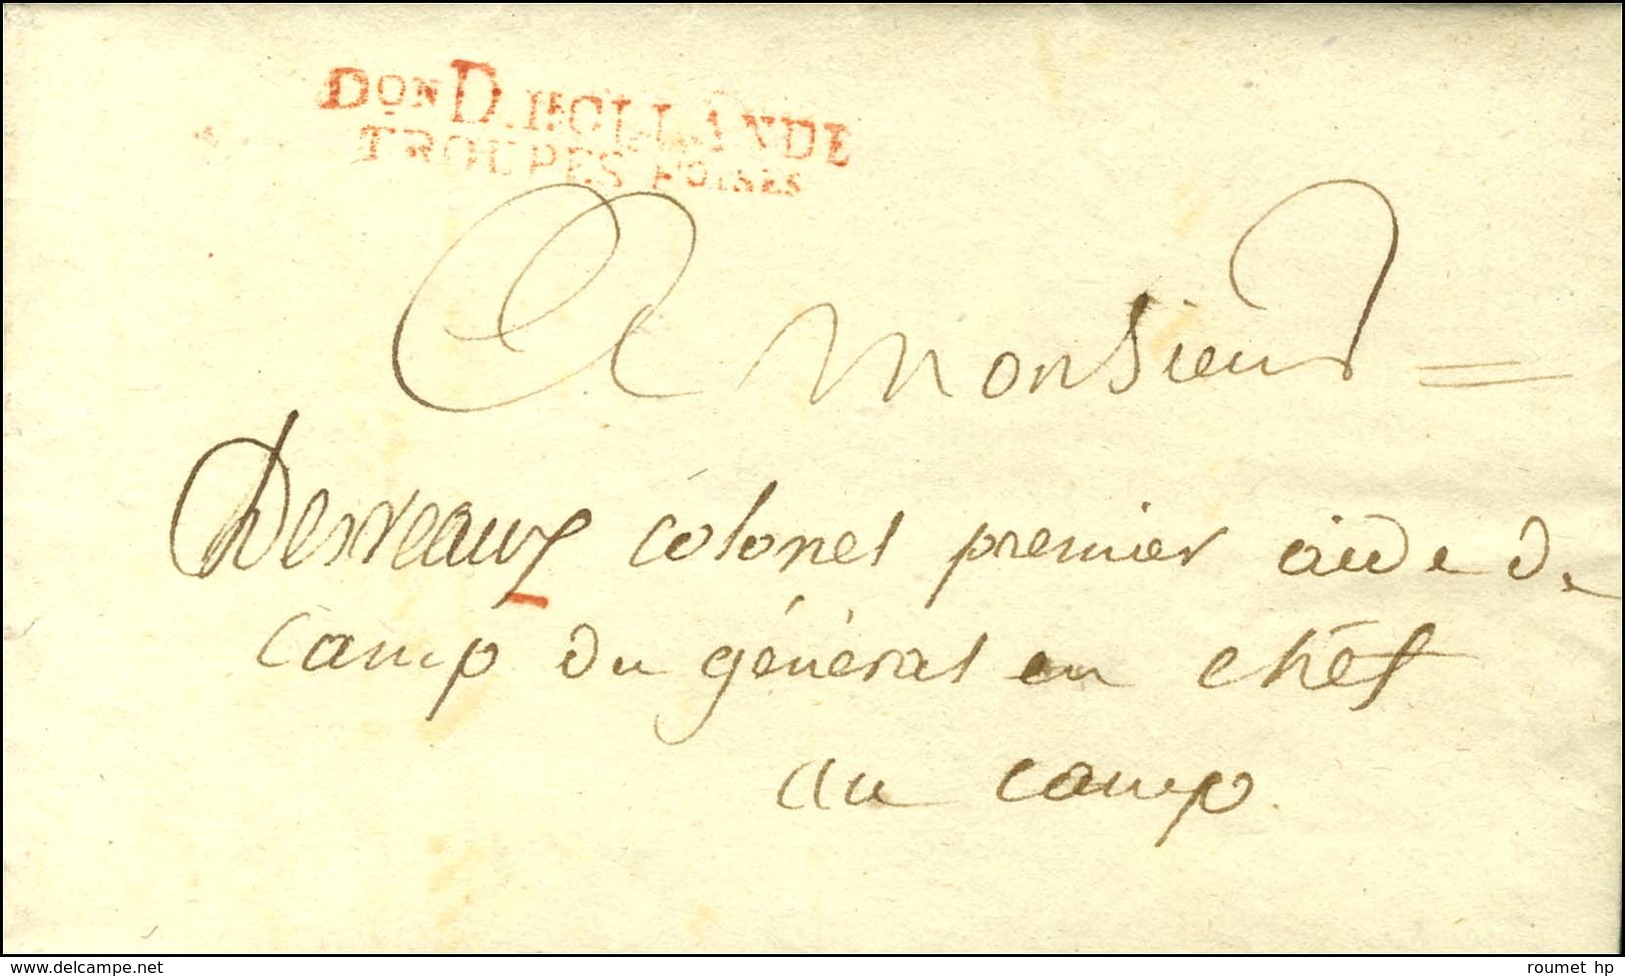 DON D.HOLLANDE
TROUPES FOISES
A Monsieur
Desveaux colonel premier aide de
camp du général en chef
au camp
www.delcampe.net
roumet hp